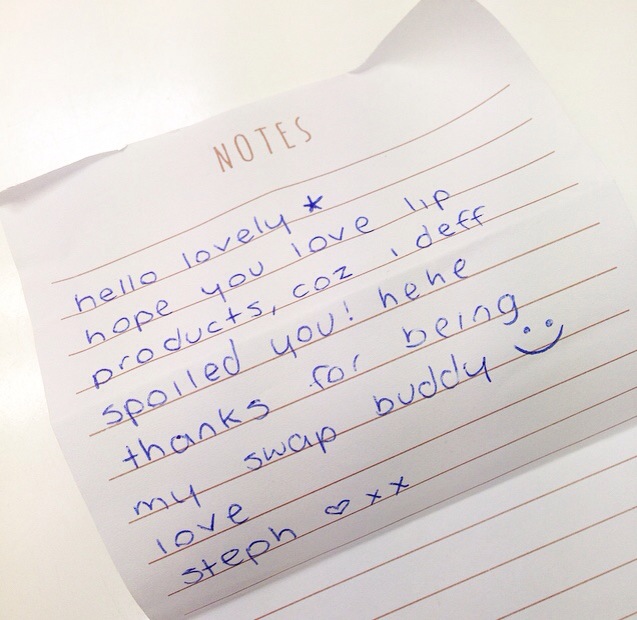 NOTES
hello lovely *
hope you love lip
products, coz i deff
spoiled you! hehe
thanks for being
my swap buddy :)
love
steph ♡xx